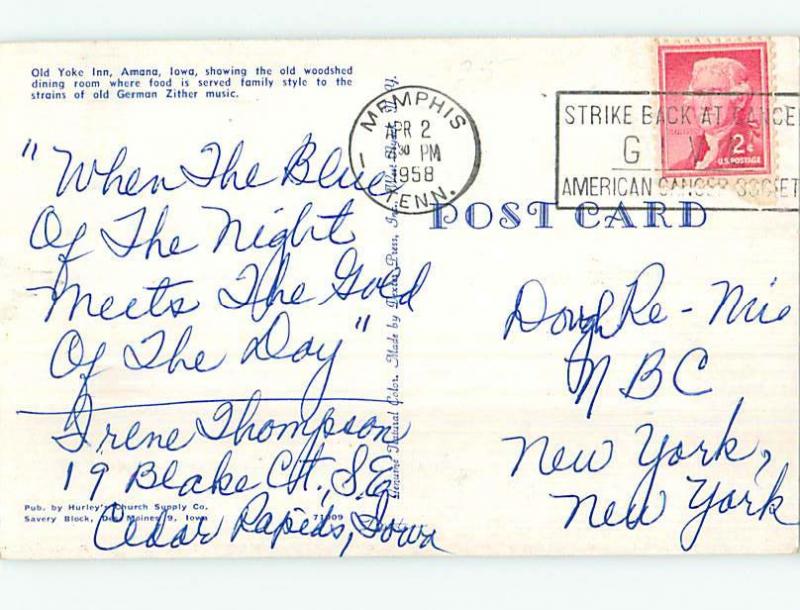 Old Yoke Inn, Amana, Iowa, showing the old woodshed
dining room where food is served family style to the
strains of old German Zither music.
"When The Blue
Of The Night
Meets The Gold
Of The Day"
Irene Thompson
19 Blake Ct., S.E.
Cedar Rapids, Iowa
Pub. by Hurley's Church Supply Co.
Savery Block, Des Moines 9, Iowa
Genuine Natural Color. Made by Dexter Press, Inc.
MEMPHIS
APR 2
PM
1958
TENN.
STRIKE BACK AT CANCE
GIV
AMERICAN CANCER SOCIET
2¢
U.S. POSTAGE
POST CARD
Dough Re-Mie
NBC
New York,
New York